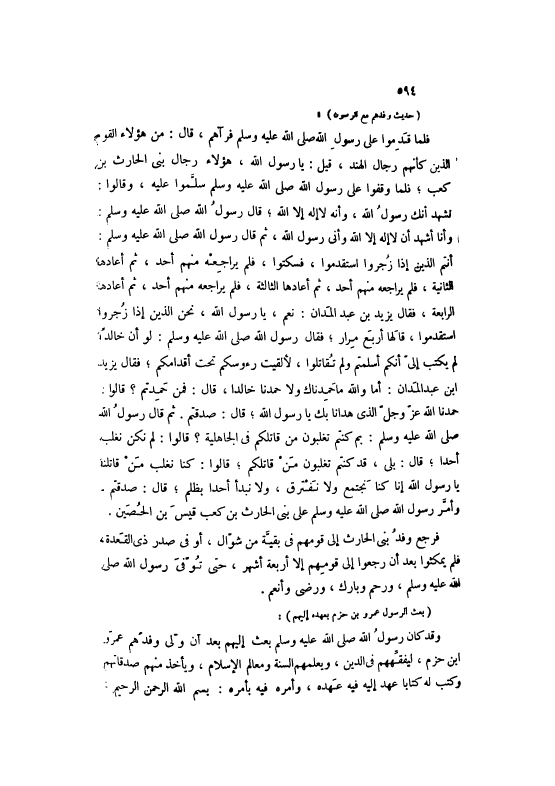 ٥٩٤
( حديث وفدهم مع الرسول ) :
فلما قدموا على رسول الله صلى الله عليه وسلم فرآهم ، قال : من هؤلاء القوم
الذين كأنهم رجال الهند ، قيل : يا رسول الله ، هؤلاء رجال بنى الحارث بن
كعب ؛ فلما وقفوا على رسول الله صلى الله عليه وسلم سلَّموا عليه ، وقالوا :
نشهد أنك رسولُ الله ، وأنه لا إله إلا الله ؛ قال رسولُ الله صلى الله عليه وسلم :
وأنا أشهد أن لا إله إلا الله وأنى رسول الله ، ثم قال رسول الله صلى الله عليه وسلم :
أنتم الذين إذا زُجروا استقدموا ، فسكتوا ، فلم يراجعْه منهم أحد ، ثم أعادها
الثانية ، فلم يراجعه منهم أحد ، ثم أعادها الثالثة ، فلم يراجعه منهم أحد ، ثم أعادها
الرابعة ، فقال يزيد بن عبد المَدان : نعم ، يا رسول الله ، نحن الذين إذا زُجروا
استقدموا ، قالها أربَع مِرار ؛ فقال رسول الله صلى الله عليه وسلم : لو أن خالدًا
لم يكتب إلىّ أنكم أسلمتم ولم تُقاتلوا ، لألقيت رءوسكم تحت أقدامكم ؛ فقال يزيد
ابن عبد المَدان : أما والله ماحَمِدناك ولا حمدنا خالدا ، قال : فمن حَمِدتم ؟ قالوا :
حمدنا الله عزّ وجلّ الذى هدانا بك يا رسول الله ؛ قال : صدقتم . ثم قال رسولُ الله
صلى الله عليه وسلم : بم كنتم تغلبون من قاتلكم فى الجاهلية ؟ قالوا : لم نكن نغلب
أحدا ؛ قال : بلى ، قد كنتم تغلبون مَنْ قاتلكم ؛ قالوا : كنا نغلب مَنْ قاتلنا
يا رسول الله إنا كنا نَجتمع ولا نَفْترق ، ولا نبدأ أحدا بظلم ؛ قال : صدقتم .
وأمَّر رسول الله صلى الله عليه وسلم على بنى الحارث بن كعب قيسَ بن الحُصَين .
فرجع وفدُ بنى الحارث إلى قومهم فى بقيَّة من شوَّال ، أو فى صدر ذى القَعدة ،
فلم يمكثوا بعد أن رجعوا إلى قومِهم إلا أربعة أشهر ، حتى تُوُفىَّ رسول الله صلى
الله عليه وسلم ، ورحم وبارك ، ورضى وأنعم .
( بعث الرسول عمرو بن حزم بعهده إليهم ) :
وقد كان رسولُ الله صلى الله عليه وسلم بعث إليهم بعد أن ولى وفدُهم عمرَو
ابن حزم ، ليفقِّههم فى الدين ، ويعلمهم السنة ومعالم الإسلام ، ويأخذ منهم صدقاتهم
وكتب له كتابا عهد إليه فيه عهده ، وأمره فيه بأمره : بسم الله الرحمن الرحيم :